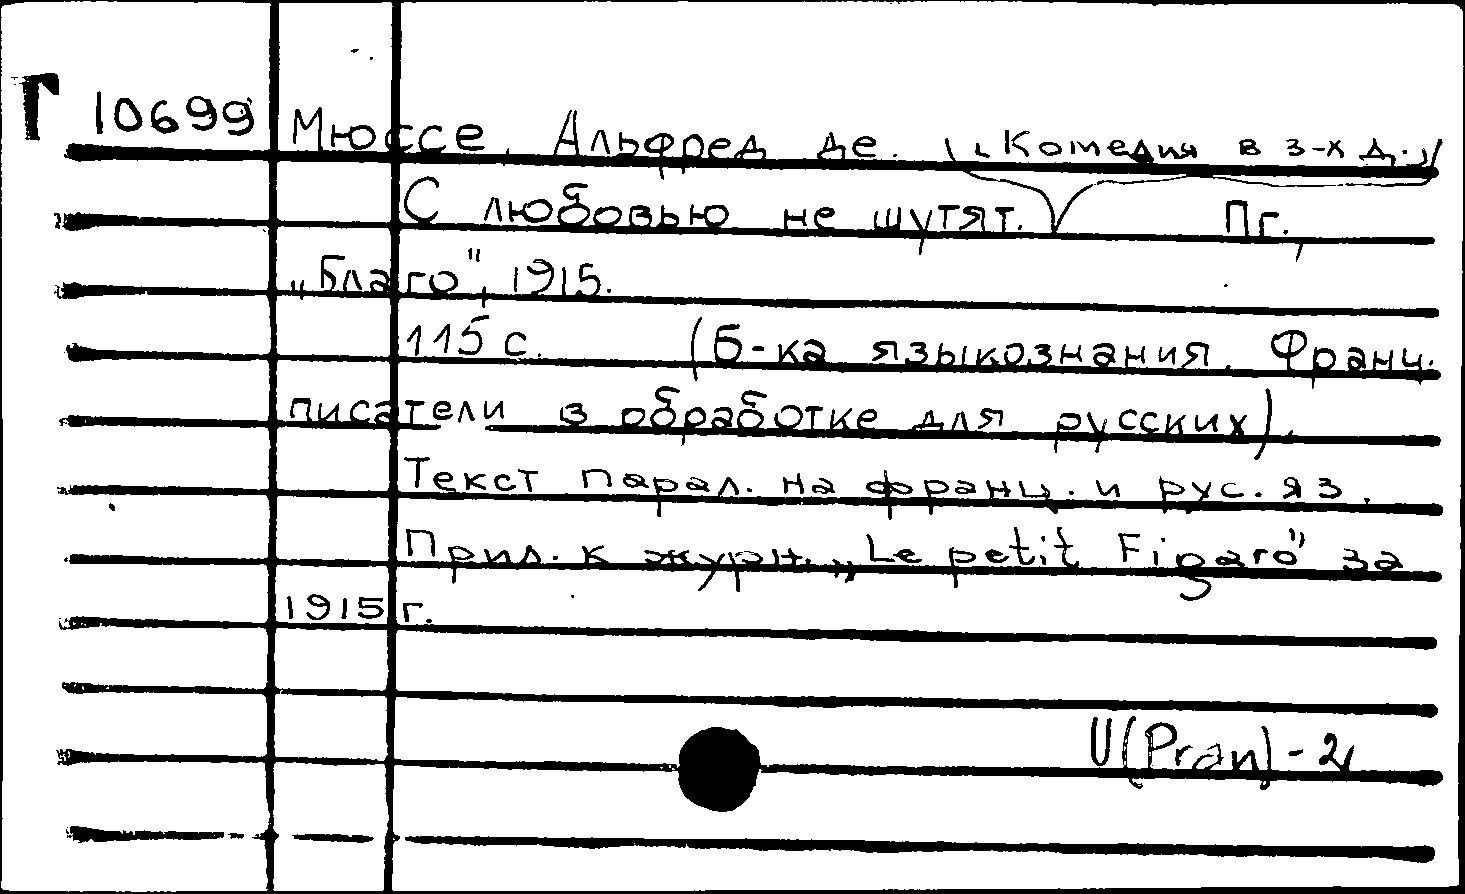 Г 10699 Мюссе, Альфред де. (Комедия в 3-х д.)
С любовью не шутят. Пг.,
„Благо", 1915.
115 с. (Б-ка языкознания. Франц.
писатели в обработке для русских).
Текст парал. на франц. и рус. яз.
Прил. к журн. „Le petit Figaro" за
1915 г.